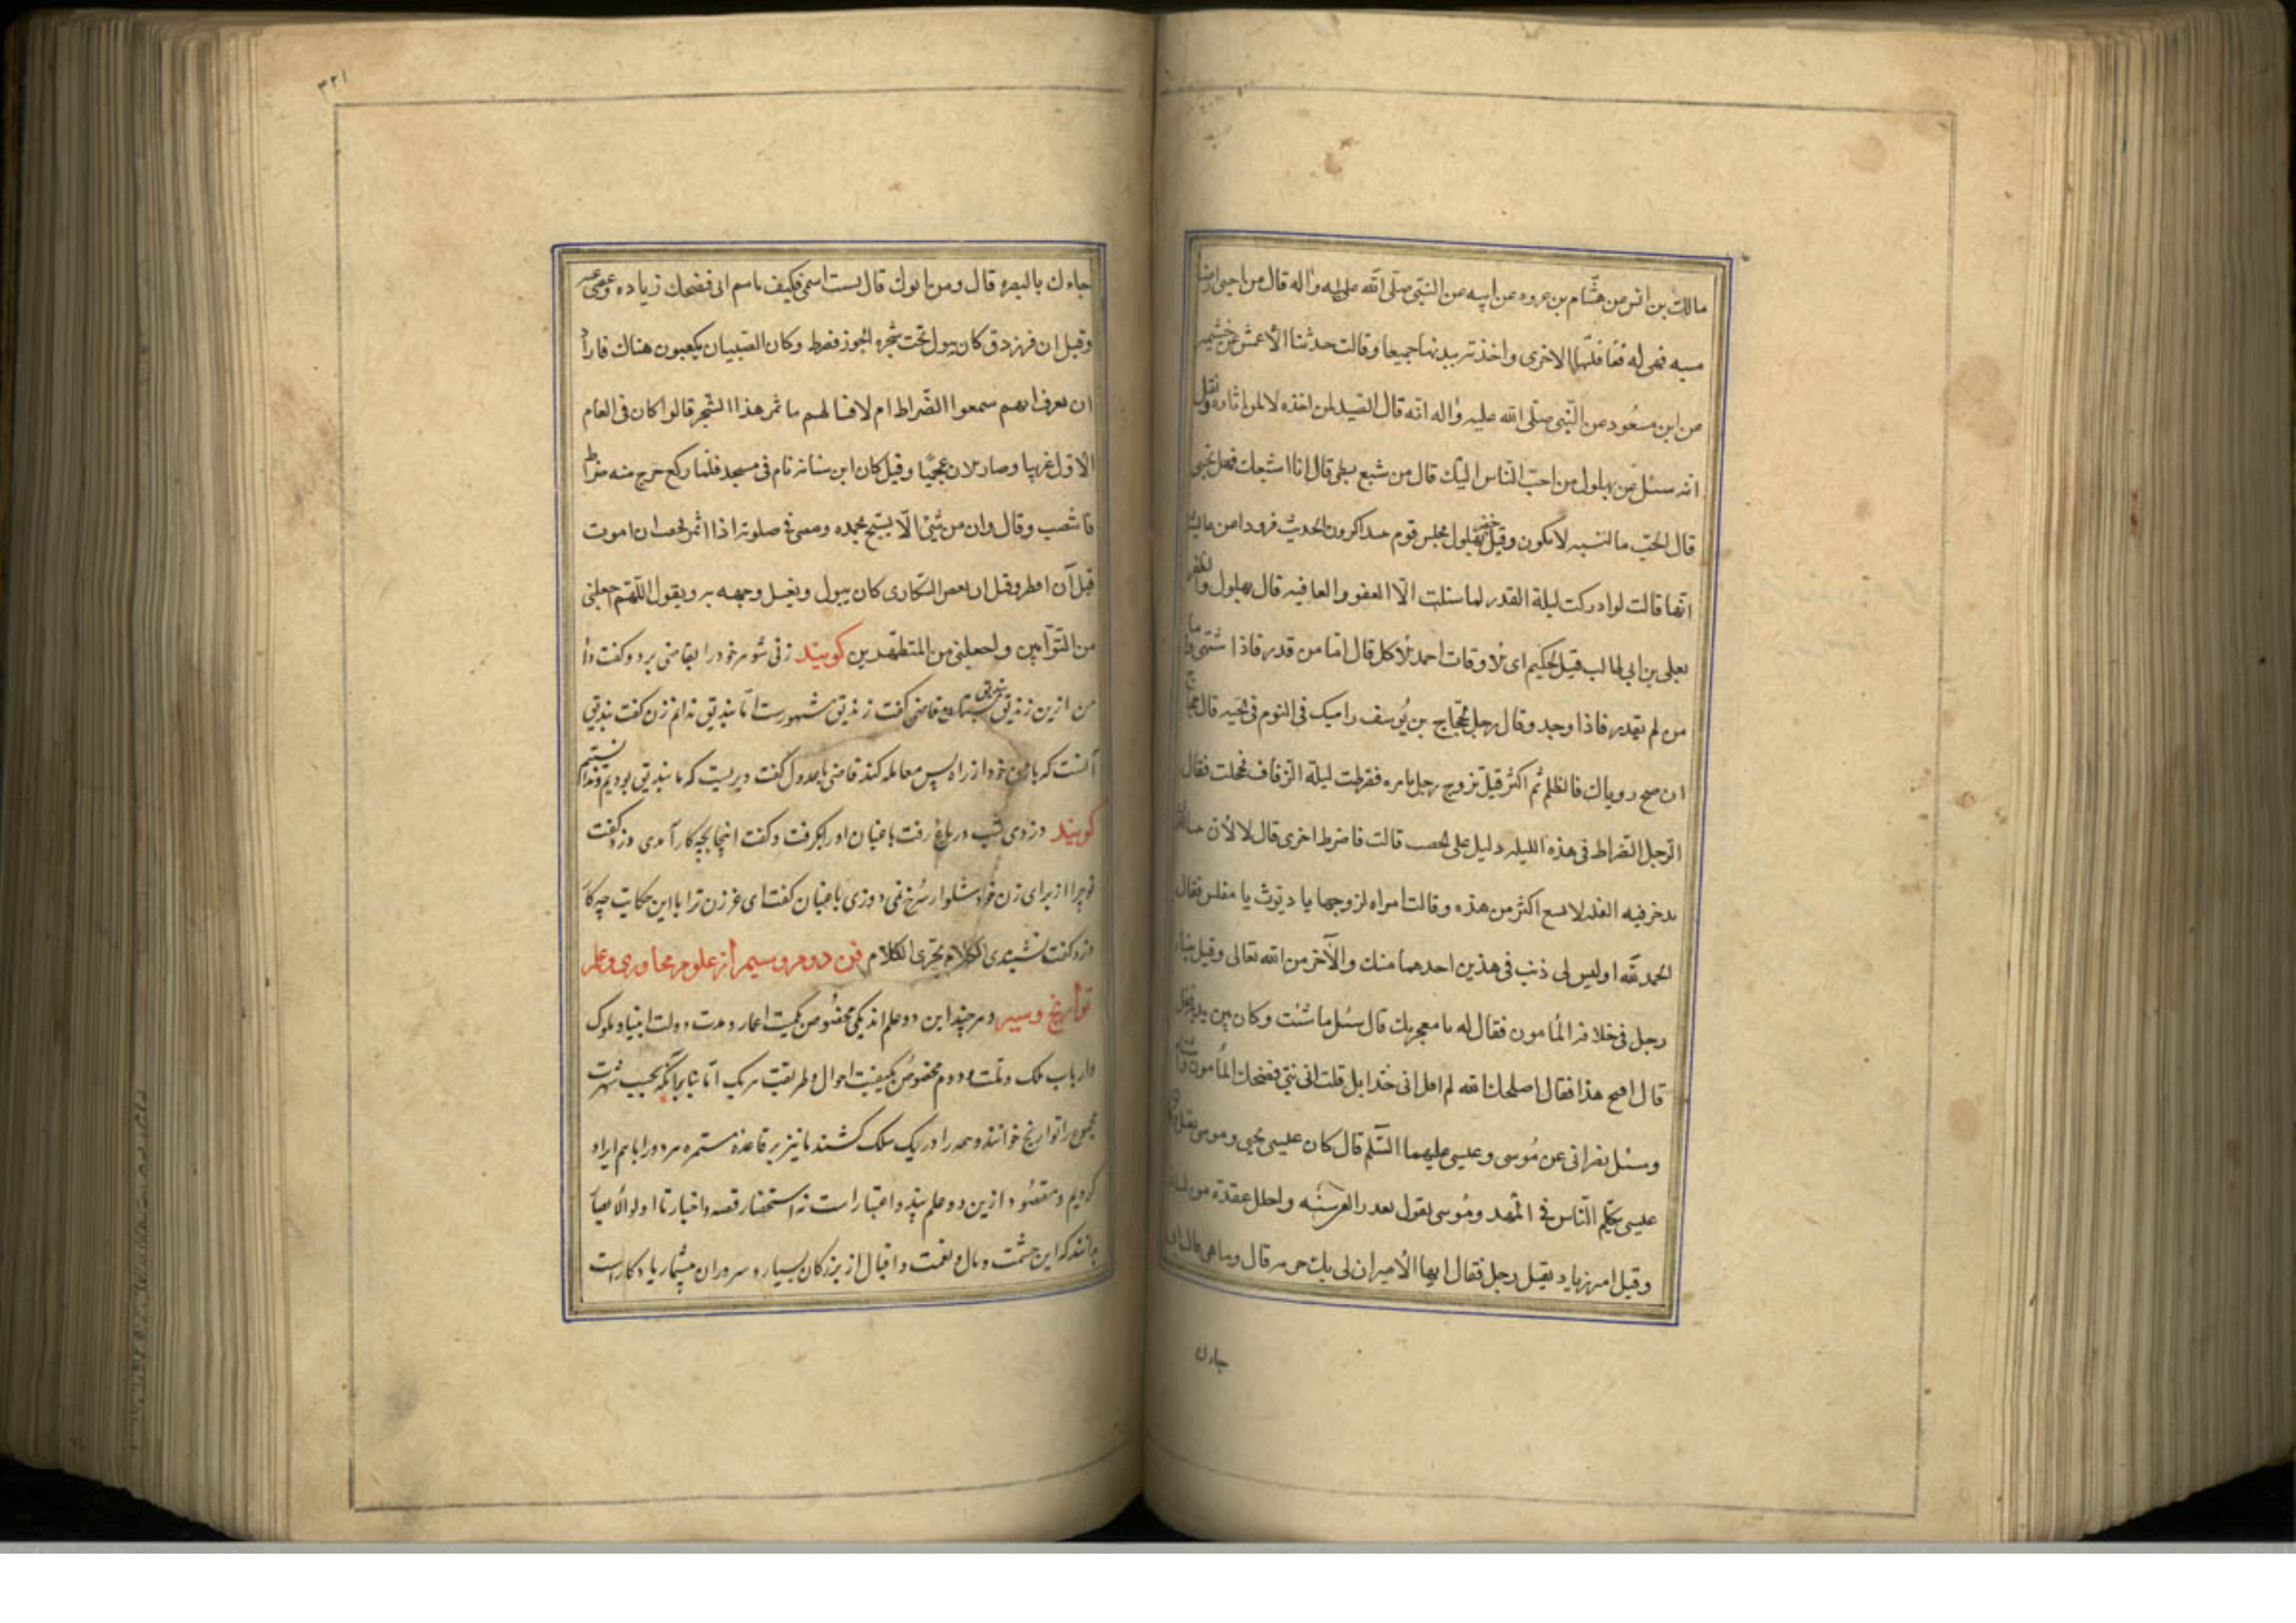 مالك بن انس من هشام بن عروه عن ابيه عن النبی صلی الله علیه واله قال من احیی ارضا
میته فهی له فغافلتها الاخری واخذته بیدیها جمیعا وقالت حدثنا الاعمش عن خیثمه
عن ابن مسعود عن النبی صلی الله علیه واله انه قال الصید لمن اخذه لا لمن اثاره ونقل
انه سئل عن بهلول من احب الناس الیك قال من شبع بطنی قال انا اشبعك فهل تحبنی
قال الحب بالنسیه لا یکون وقیل بهلول مجلس قوم یتذاکرون الحدیث فرووا عن عایشه
انها قالت لو ادرکت لیلة القدر لما سئلت الا العفو والعافیه قال بهلول والظفر
بعلی بن ابی طالب قیل لحکیم ای الاوقات احمد للاکل قال اما من قدر فاذا اشتهی واما
من لم یقدر فاذا وجد وقال رجل لحجاج بن یوسف رایتك فی النوم فی قال
ان صح رویاك فالظلم ثم اکثر قیل تزوج رجل بامره فضرطت لیلة الزفاف فخجلت فقال
الرجل الضراط فی هذه اللیله دلیل علی الخصب قالت فاضرط اخری قال لا لان
یدخر فیه الغله لا یسع اکثر من هذه وقالت امراه لزوجها یا دیوث یا مفلس فقال
الحمد لله اولیس لی ذنب فی هذین احدهما منك والآخر من الله تعالی وقیل
رجل فی خلافة المأمون فقال له ما معجزتك قال سئل ما شئت وکان بین یدیه قفل
قال افتح هذا فقال اصلحك الله لم اقل انی حداد بل قلت انی نبی فضحك المأمون
وسئل نصرانی عن موسی وعیسی علیهما السلم قال کان عیسی یحیی وموسی یقتل
عیسی یکلم الناس فی المهد وموسی یقول بعد واحلل عقدة من
وقیل امر زیاد بقتل رجل فقال ایها الامیر ان لی بك حرمه قال وما هی قال
جارك
٣٢١
جارك بالبصره قال ومن ابوك قال نسیت اسمی فکیف باسم ابی فضحك زیاده وعفی عنه
وقیل ان فرزدق کان یبول تحت شجره الجوز فضرط وکان الصبیان یلعبون هناك فاراد
ان یعرف انهم سمعوا الضراط ام لا فسالهم ما ثمر هذا الشجر قالوا کان فی العام
الاول عربیا وصار الان عجمیا وقیل کان ابن سنانه نام فی مسجد فلما رکع خرج منه ضراط
فانتصب وقال وان من شیئ الا یسبح بحمده
قبل آن افطر وقیل ان بعض السکاری کان یبول ویغسل وجهه به ویقول اللهم اجعلنی
من التوابین واجعلنی من المتطهرین کویند زنی شوهر خود را بقاضی برد وکفت داد
من ازین زندیق بندیق بستان قاضی کفت زندیق مشهورست اما بندیق ندانم زن کفت بندیق
آنست که با زن خود از راه پس معامله کند قاضی با عدول کفت دیریست که ما بندیق بودیم وندانستیم
کویند دزدی شب در باغ رفت باغبان او را بکرفت وکفت اینجا بچه کار آمدی دزد کفت
تو چرا از برای زن خود شلوار سرخ نمی دوزی باغبان کفت ای غر زن ترا با این حکایت چه کار
دزد کفت نشنیدی الکلام یجری الکلام فن دوم وسیم از علوم محاوری وعلم
تواریخ وسیر وهر چند این دو علم اند یکی مخصوص بکمیت اعمار ومدت دولت انبیا وملوک
وارباب ملک وملت ودوم مخصوص بکیفیت احوال وطریقت هریک اما بنابر آنکه بحسب شهرت
مجموع را تواریخ خوانند وهمه را در یک سلک کشند ما نیز بر قاعده مستمره هر دو را باهم ایراد
کردیم ومقصود ازین دو علم پند واعتبار است نه استحضار قصه واخبار تا اولو الابصار
بدانند که این حشمت ومال ونعمت واقبال از بزرکان بسیار وسروران بیشمار یادکار است